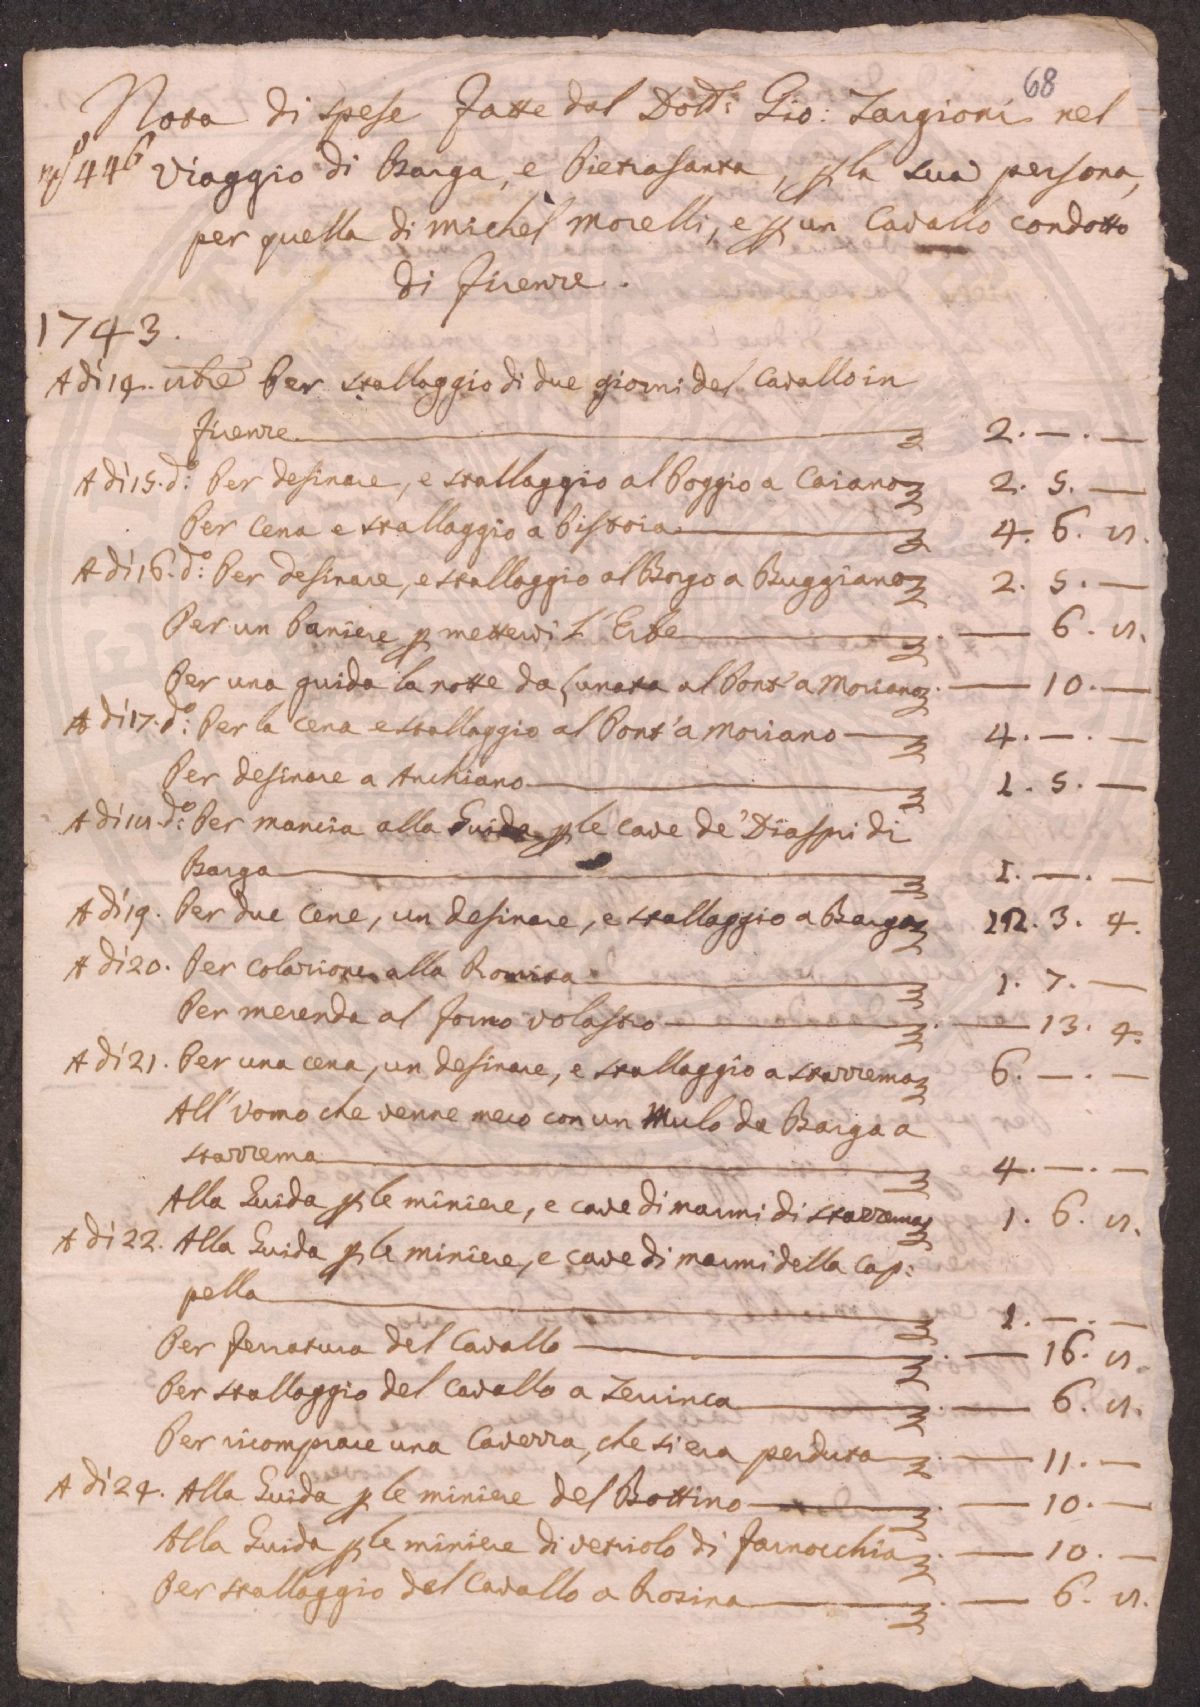 68
Nota di spese fatte dal Dott.: Gio: Targioni nel
446 Viaggio di Barga, e Pietrasanta, p la sua persona,
per quella di Michel Morelli, e p un Cavallo condotto
di Firenze.
1743.
A dì 14. 8bre Per stallaggio di due giorni del Cavallo in
Firenze 2. — . —
A dì 15. do: Per desinare, e stallaggio al Poggio a Caiano 2. 5. —
Per Cena e stallaggio a Pistoia 4. 6. 8.
A dì 16. do: Per desinare, e stallaggio al Borgo a Buggiano 2. 5. —
Per un Paniere p mettervi l'Erbe — 6. 8.
Per una guida la notte da Lunata al Pont'a Moriano — 10. —
A dì 17. do: Per la Cena e stallaggio al Pont'a Moriano 4. — . —
Per desinare a Anchiano 1. 5. —
A dì 18 do: Per mancia alla Guida p le cave de' Diaspri di
Barga 1. — . —
A dì 19. Per due Cene, un desinare, e stallaggio a Barga 12. 3. 4.
A dì 20. Per Colazione alla Romita 1. 7. —
Per merenda al Forno Volastro — 13. 4.
A dì 21. Per una cena, un desinare, e stallaggio a Stazzema 6. — . —
All'Vomo che venne meco con un Mulo da Barga a
Stazzema 4. — . —
Alla Guida p le miniere, e cave di marmi di Stazzema 1. 6. 8.
A dì 22. Alla Guida p le miniere, e cave di marmi della Cap:
pella 1. — . —
Per ferratura del Cavallo — 16. 8.
Per stallaggio del Cavallo a Zerrinca — 6. 8.
Per ricomprare una Cavezza, che si era perduta — 11. —
A dì 24. Alla Guida p le miniere del Bottino — 10. —
Alla Guida p le miniere di vetriolo di Farnocchia — 10. —
Per stallaggio del Cavallo a Rosina — 6. 8.